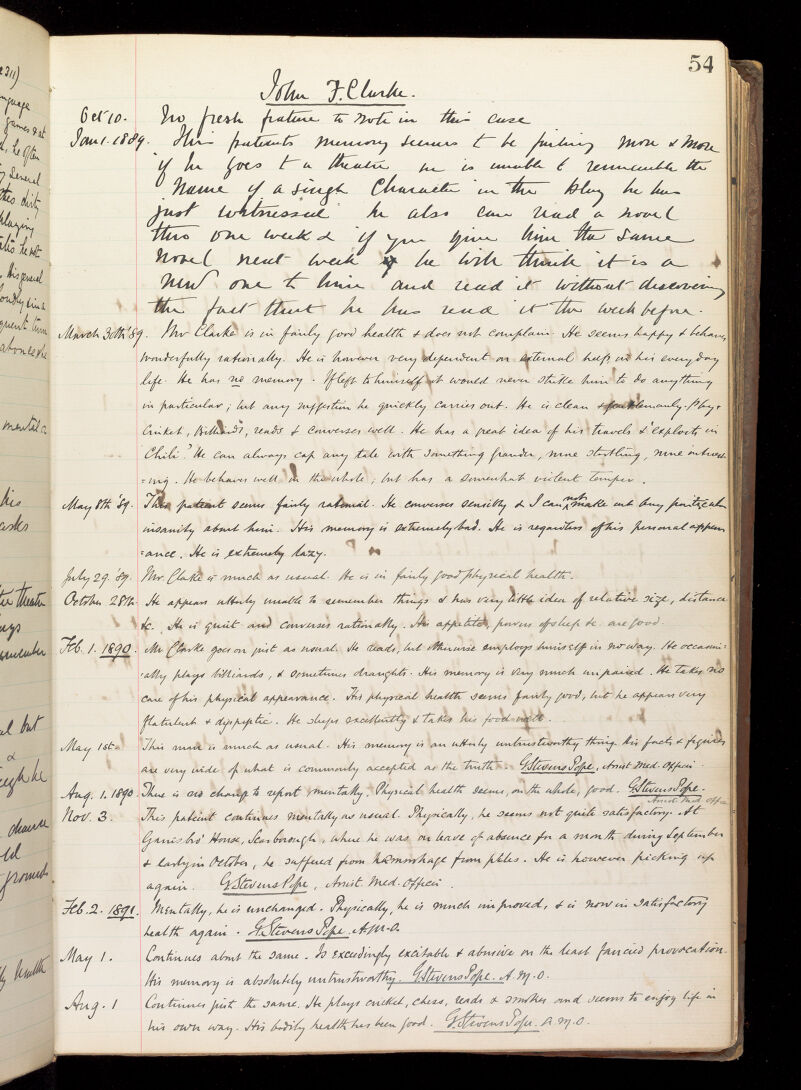 54
John F. Clarke.
Oct 10. No fresh feature to note in this case
Jan 1. 1889. This patients memory seems to be failing more & more
if he goes to a theatre he is unable to remember the
name of a single Character in the play he has
just witnessed he also can read a novel
this one week & if you give him the same
novel next week he will think it is a
new one to him and read it without discovering
the fact that he has read it the week before.
March 30th '89. Mr Clarke is in fairly good health & does not complain. He seems happy & behaves
wonderfully rationally. He is however very dependent on external help in his every day
life. He has no memory. If left to himself it would never strike him to do anything
in particular; but any suggestion he quickly carries out. He is clean & gentlemanly. Plays
Cricket, Billiards, reads & converses well. He has a great idea of his travels & "exploits in
Chili." He can always cap any tale with something grander, more startling, more interest-
=ing. He behaves well on the whole, but has a somewhat violent temper.
May 8th '89. This patient seems fairly rational. He converses sensibly & I can not make out any particular
insanity about him. His memory is extremely bad. He is regardless of his personal appear-
=ance. He is extremely lazy.
July 29. '89. Mr. Clarke is much as usual. He is in fairly good physical health.
October 28th. He appears utterly unable to remember things & has very little idea of relative size, distance
&c. He is quiet and converses rationally. His appetite, powers of sleep &c are good.
Feb. 1. 1890. Mr Clarke goes on just as usual. He reads, but otherwise employs himself in no way. He occasion-
=ally plays billiards, & sometimes draughts. His memory is very much impaired. He takes no
care of his physical appearance. His physical health seems fairly good, but he appears very
flatulent & dyspeptic. He sleeps excellently & takes his food well.
May 1st. This man is much as usual. His memory is an utterly untrustworthy thing. His facts & figures
are very wide of what is commonly accepted as the truth. G. Stevens Pope, Assist. Med. Officer.
Aug. 1. 1890. There is no change to report mentally. Physical health seems, on the whole, good. G. Stevens Pope.
Assist. Med. Offr.
Nov. 3. This patient continues mentally as usual. Physically, he seems not quite satisfactory. At
House, Scarborough, where he was on leave of absence for a month during September
& early in October, he suffered from hæmorrhage from piles. He is however picking up
again. G. Stevens Pope, Assist. Med. Officer.
Feb. 2. 1891. Mentally, he is unchanged. Physically, he is much improved, & is now in satisfactory
health again. G. Stevens Pope. A.M.O.
May 1. Continues about the same. Is exceedingly excitable & abusive on the least fancied provocation.
His memory is absolutely untrustworthy. G. Stevens Pope. A.M.O.
Aug. 1 Continues just the same. He plays cricket, chess, reads & smokes and seems to enjoy life in
his own way. His bodily health has been good. G. Stevens Pope. A.M.O.